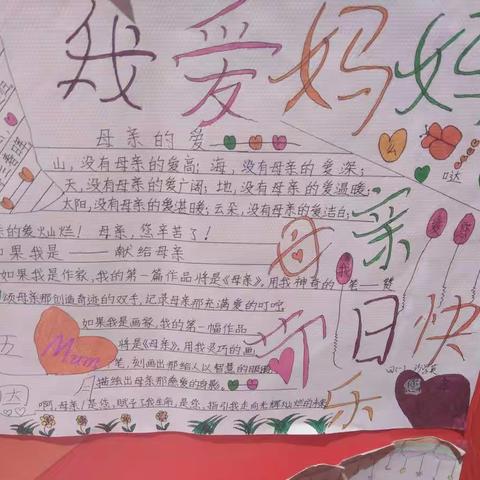 我爱妈妈
母亲的爱
山，没有母亲的爱高；海，没有母亲的爱深；
天，没有母亲的爱广阔；地，没有母亲的爱温暖；
太阳，没有母亲的爱温暖；云朵，没有母亲的爱洁白；
的爱灿烂！母亲，您辛苦了！
如果我是——献给母亲
如果我是作家，我的第一篇作品将是《母亲》。用我神奇的笔
颂母亲那创造奇迹的双手，记录母亲那充满爱的叮咛
如果我是画家，我的第一幅作品
将是《母亲》。用我灵巧的画
笔，刻画出那给人以智慧的眼睛
描绘出母亲那慈爱的身影。
啊，母亲！是您，赋予了我生命，是您，指引我走向光辉灿烂的
母亲节
日快乐
Mum
五
月
我
爱
哒